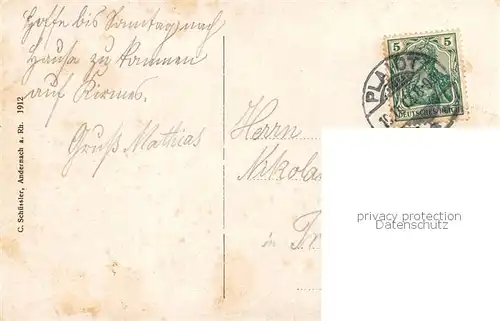 Hoffe bis Sonntag nach
Hause zu kommen
auf Kirmes.
Gruß Mathias
C. Schlüssler, Andernach a. Rh. 1912
Herrn
Nikolas
in
5 5
DEUTSCHES REICH
PLAIDT
privacy protection
Datenschutz